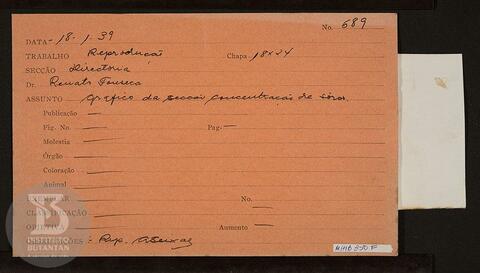 No. 689
DATA - 18-1-39
TRABALHO Reproducção Chapa 18x24
SECÇÃO Directoria
Dr. Renato Fonseca
ASSUNTO Grafico da seccão concentração de sôros
Publicação
Fig. No. Pag.
Molestia
Órgão
Coloração
Animal
EXEMPLAR No.
CLASSIFICAÇÃO
OBJETIVA Aumento
: Rep.
INSTITUTO
BUTANTAN